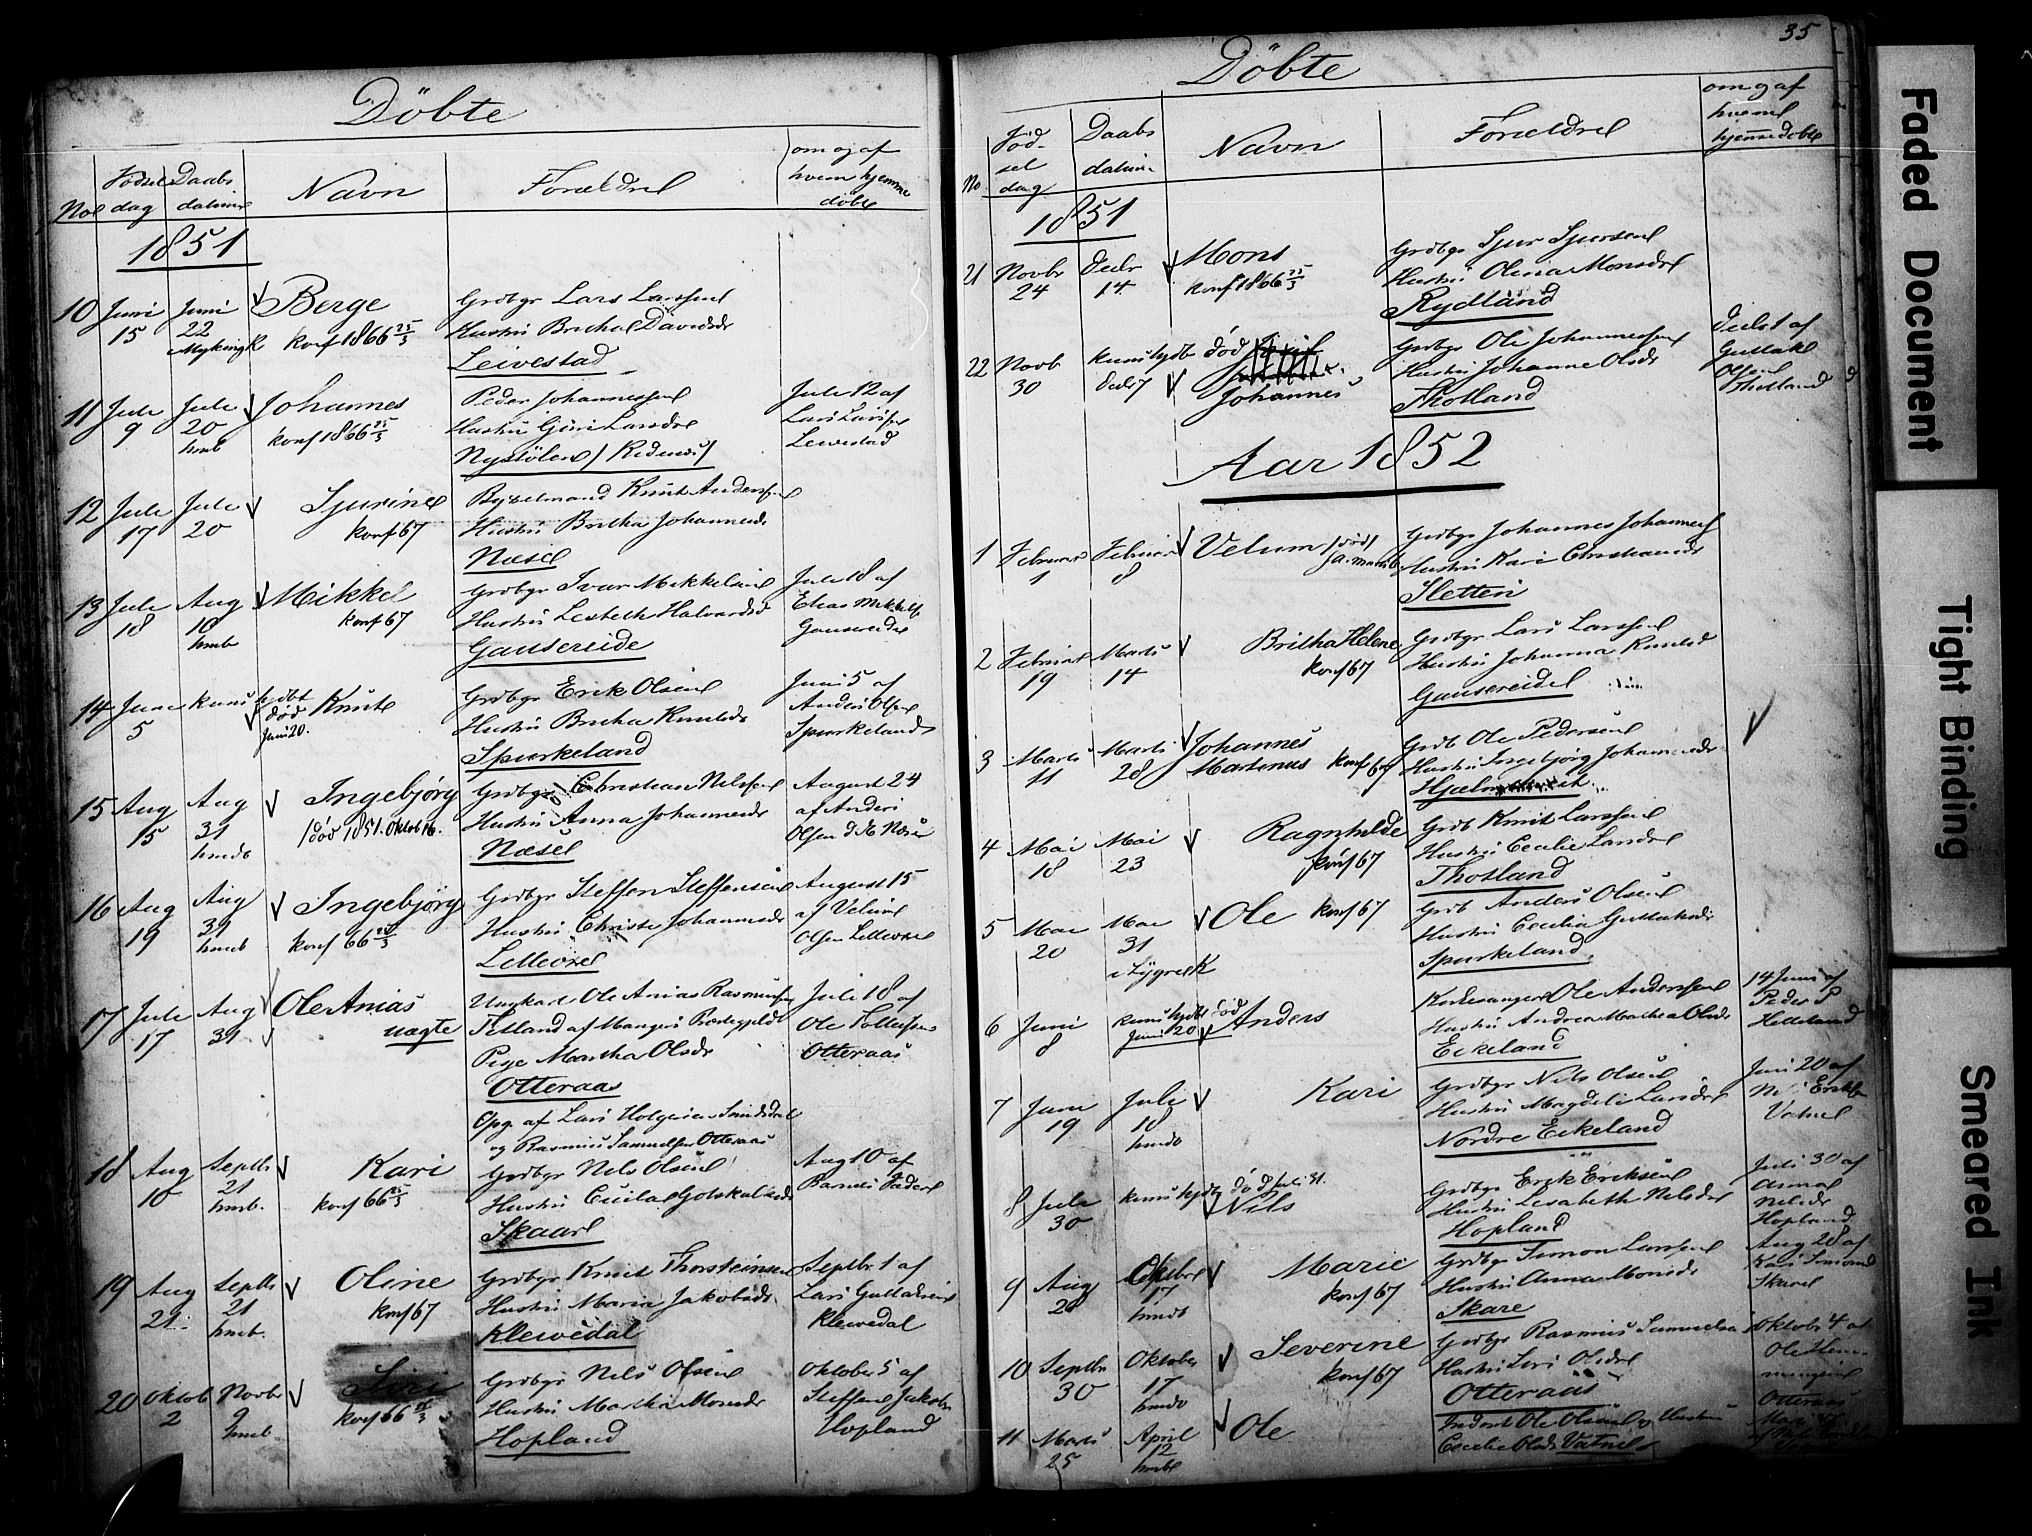 Döbte
Noe
Födsel dag
Daabs datum
Navn
Forældre
om og af hvem hjemme döbt
1851
10 Juni 15 Juni 22 Myking K
Berge
konf 1866 25/3
Grdbgr Lars Larssen
Hustru Britha Davidsdr
Leivestad
11 Juli 9 Juli 20 hmb
Johannes
konf 1866 25/3
Peder Johannessen
Hustru Giuri Larsdr
Nystölen
Juli 12 af
Lars Larsen
Leivestad
12 Juli 17 Juli 20
Sjurine
konf 67
Bygselmand Knut Anderssen
Hustru Britha Johannesdr
Næse
13 Juli 18 Aug 10 hmb
Mikkel
konf 67
Grdbgr Ivar Mikkelsen
Hustru Lisbeth Halvardsd
Gausereide
Juli 18 af
Elias Mikkels
Gausereide
14 Juni 5 kuns hjdbt
död Juni 20.
Knut
Grdbgr Erik Olsen
Hustru Britha Knutsdr
Spurkeland
Juni 5 af
Anders Olsen
Spurkeland
15 Aug 15 Aug 31 hmdb
Ingebjörg
/död 1851. Oktob 16.
Grdbgr Christian Nilssen
Hustru Anna Johannesdr
Næse
August 24
af Anders
Olsen Næse
16 Aug 19 Aug 31 hmb
Ingebjörg
konf 66 25/3
Grdbgr Steffen Steffensen
Hustru Christi Johannesdr
Lilleoxe
August 15
af Velom
Olsen Lilleoxe
17 Juli 17 Aug 31
Ole Anias
uægte
Ungkarl Ole Anias Rasmussen
Fetland af Mangers Præstegjeld
Pige Martha Olsdr
Otteraas
Opg. af Lars
og Rasmus Samuelsen Otteraas
Juli 18 af
Ole Tollefsen
Otteraas
18 Aug 10 Septbr 21 hmb.
Kari
konf 66 25/3
Grdbgr Nils Olsen
Hustru Cecilia Gotskalksdr
Skaar
Aug 10 af
Barnets Fader
19 Aug 21 Septbr 21 hmb.
Oline
konf 67
Grdbgr Knut Thorsteinsen
Hustru Maria Jakobsdr
Kleivedal
Septbr 1 af
Lars Guttormsen
Kleivedal
20 Oktob 2 Novbr 9 hmb.
Siri
konf 66 25/3
Grdbgr Nils Olsen
Hustru Martha Monsdr
Hopland
Oktober 5 af
Steffen Jakobs
Hopland
35
Döbte
No
Födsel dag
Daabs datum
Navn
Forældre
om og af hvem hjemmedöbt
1851
21 Novbr 24 Decbr 14
Mons
konf 1866 25/3
Grdbgr Sjur Sjursen
Hustru Olina Monsdr
Rydland
22 Novb 30 kuns hjdbt Decbr 7
död
Johannes
Grdbgr Ole Johannessen
Hustru Johanne Olsdr
Thotland
Decbr 1 af
Guttak
Olsen
Thotland
Aar 1852
1 Februar 1 Februar 8
Velum /död/
Grdbgr Johannes Johannes
Hustru Kari Christiansdr
Sletten
2 Februar 19 Marts 14
Britha Helene
konf 67
Grdbgr Lars Larssen
Hustru Johanna Knutsd
Gausereide
3 Marts 11 Marts 28
Johannes
Martinus konf 67
Grdb Ole Pedersen
Hustru Ingebjörg Johannesdr
4 Mai 18 Mai 23
Ragnhilde
konf 67
Grdb Knut Larssen
Hustru Cecilie Larsdr
Thotland
5 Mai 20 Mai 31 i Lygre K
Ole konf 67
Grdb Anders Olsen
Hustru Cecilia Guttaksdr
Spurkeland
6 Juni 8 kuns hjdbt död Juni 20
Anders
Kirkesanger Ole Anderssen
Hustru Andrea Mathea Olsdr
Eikeland
14 Juni af
Peder P
Helleland
7 Juni 19 Juli 18 hmdb
Kari
Grdbgr Nils Olsen
Hustru Magdeli Larsdr
Nordre Eikeland
Juni 20 af
Nils Eriks
Vatne
8 Juli 30 kuns hjdbt död Juli 31.
Nils
Grdbgr Erik Eriksen
Hustru Lisabeth Nilsdr
Hopland
Juli 30 af
Nilsdr
Hopland
9 Aug 28 Oktbr 17 hmdb
Marie
konf 67
Grdbgr Simon Larssen
Hustru Anna Monsdr
Skare
Aug 28 af
Skare
10 Septbr 30 Oktober 17 hmdb
Severine
konf 67
Grdbgr Rasmus Samuelsen
Hustru Siri Olsdr
Otteraas
Oktobr 4 af
Ole Hemmingsen
Otteraas
11 Marts 25 April 12 hmb
Ole
Inderst Ole Olsen og Hustru
Cecilie Olsdr Vatne
Faded Document
Tight Binding
Smeared Ink